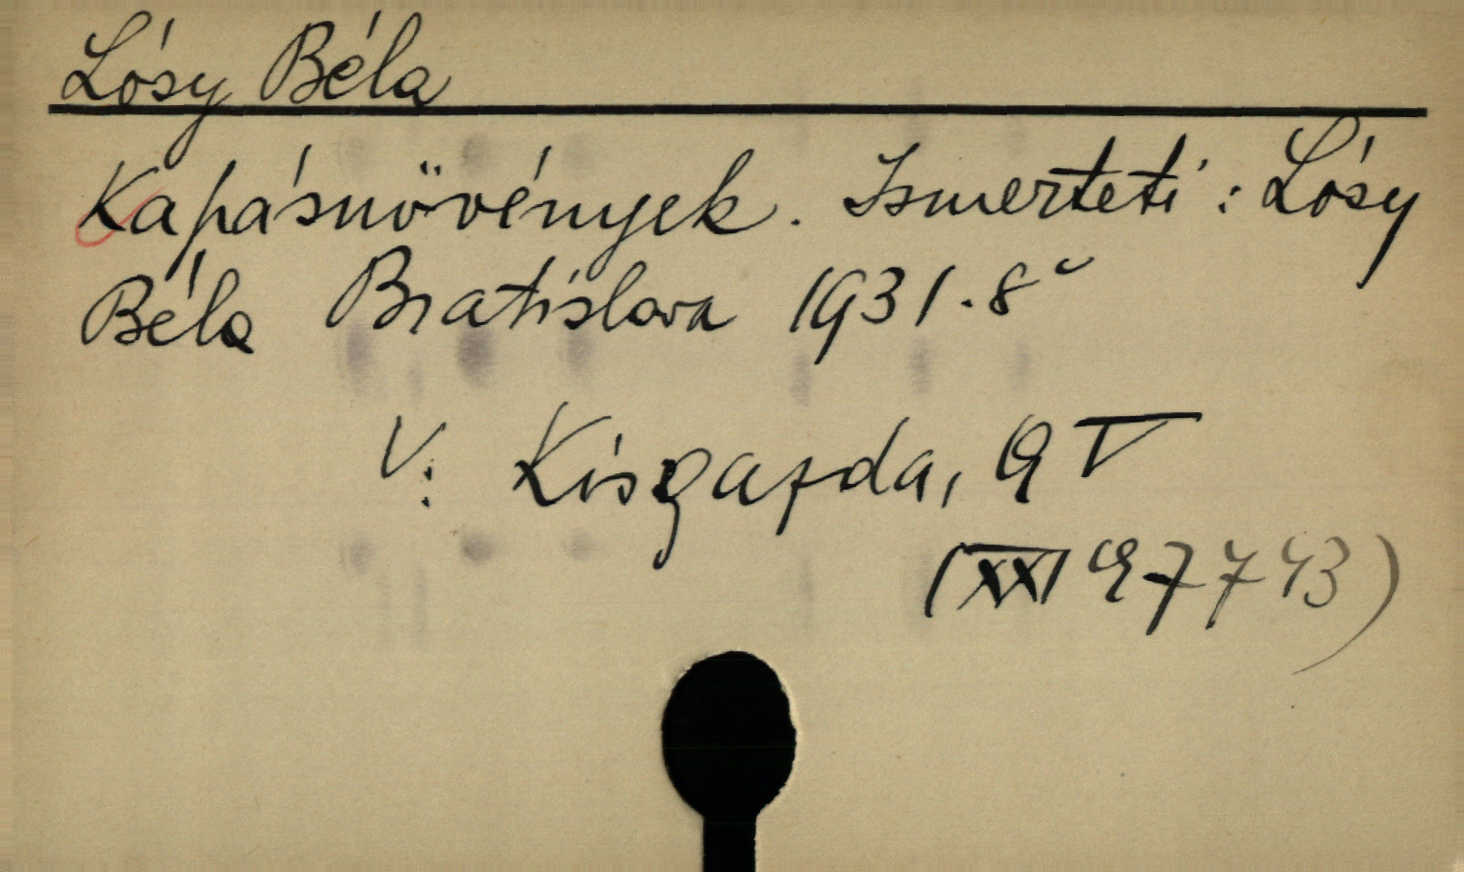 Lósy Béla
Kapásnövények. Ismerteti: Lósy
Béla Bratislava 1931. 8°
V: Kisgazda, 9 V
(XXI 97743)